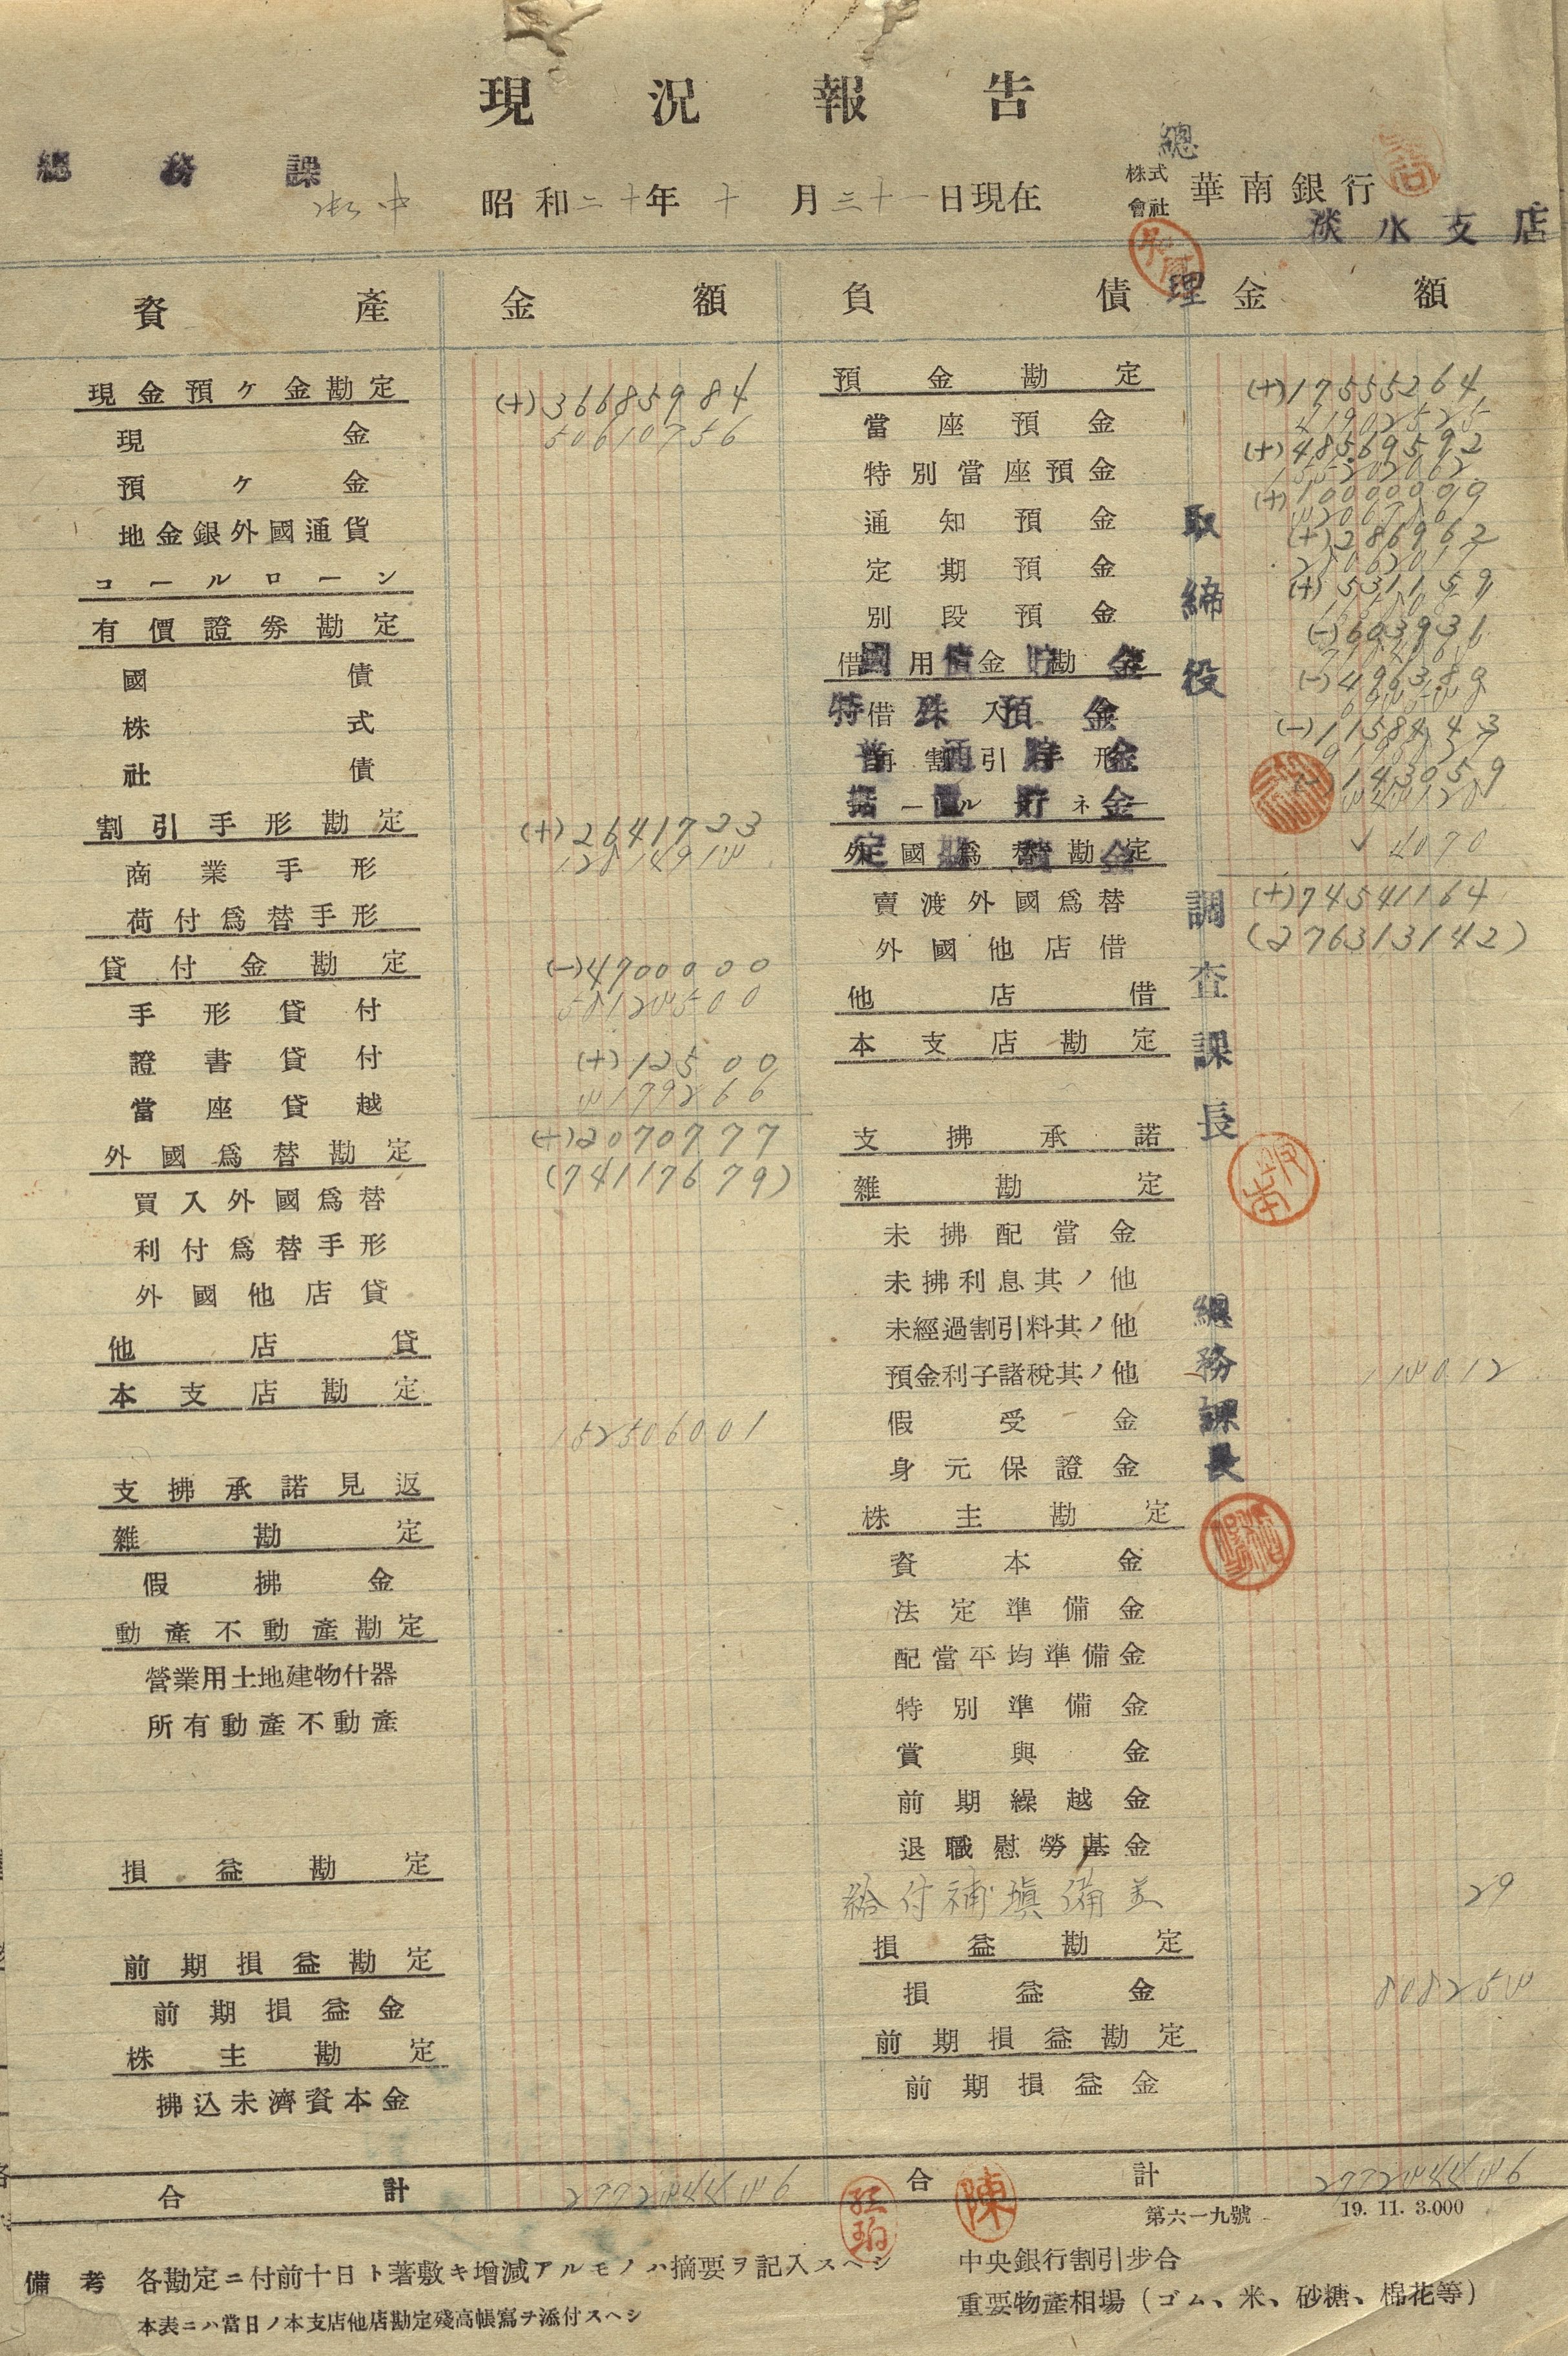 現況報告
總務課
昭和二十年十月三十一日現在
總
株式會社 華南銀行
淡水支店
資產 金額 負債 金額
理
現金預ヶ金勘定 (+)36685984
現金 50610756
預ヶ金
地金銀外國通貨
コールローン
有價證券勘定
國債
株式
社債
割引手形勘定 (+)2641723
商業手形
荷付爲替手形
貸付金勘定 (-)4700000
手形貸付 58124500
證書貸付 (+)12500
當座貸越 4179266
外國爲替勘定 (+)2070777
買入外國爲替 (74117679)
利付爲替手形
外國他店貸
他店貸
本支店勘定
152506001
支拂承諾見返
雜勘定
假拂金
動產不動產勘定
營業用土地建物什器
所有動產不動產
損益勘定
前期損益勘定
前期損益金
株主勘定
拂込未濟資本金
合計 277244446
預金勘定 (+)17555264
當座預金 41902525
(+)48569592
特別當座預金 155202062
(+)10000000
通知預金
(+)286962
定期預金
(+)531159
別段預金
(-)603931
借用金勘定
國債貯金
(-)496389
借入金
特殊預金
(-)1158443
再割引手形
普通貯金
143059
コールマネー
据置貯金
4070
外國爲替勘定
定期積金
賣渡外國爲替 (+)74541164
外國他店借 (276313142)
他店借
本支店勘定
支拂承諾
雜勘定
未拂配當金
未拂利息其ノ他
未經過割引料其ノ他
預金利子諸稅其ノ他 114012
假受金
身元保證金
株主勘定
資本金
法定準備金
配當平均準備金
特別準備金
賞與金
前期繰越金
退職慰勞基金
給付補塡備金 29
損益勘定
損益金 808254
前期損益勘定
前期損益金
合計 277244446
取締役
調查課長
總務課長
陳
第六一九號 19. 11. 3.000
備考 各勘定ニ付前十日ト著敷キ增減アルモノハ摘要ヲ記入スヘシ
本表ニハ當日ノ本支店他店勘定殘高帳寫ヲ添付スヘシ
中央銀行割引步合
重要物產相場(ゴム、米、砂糖、棉花等)